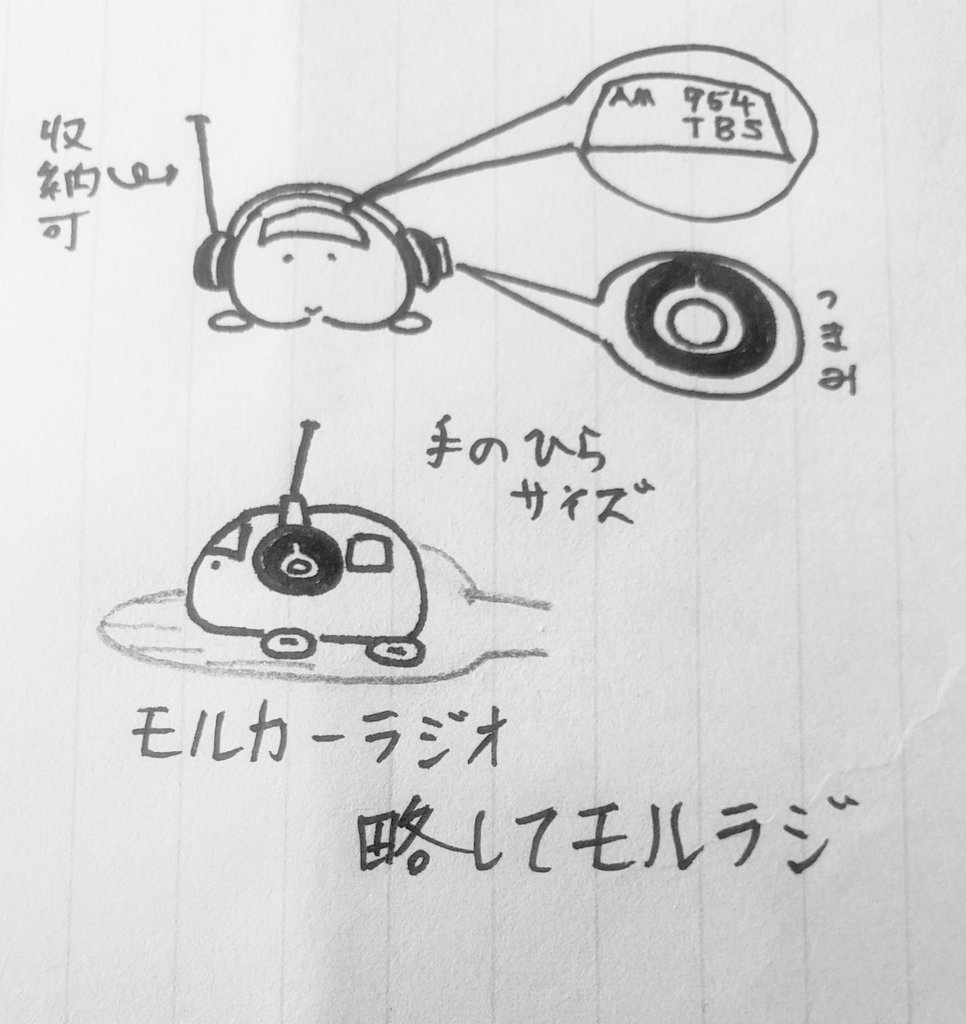 収納可
AM 954
TBS
つまみ
手のひら
サイズ
モルカーラジオ
略してモルラジ